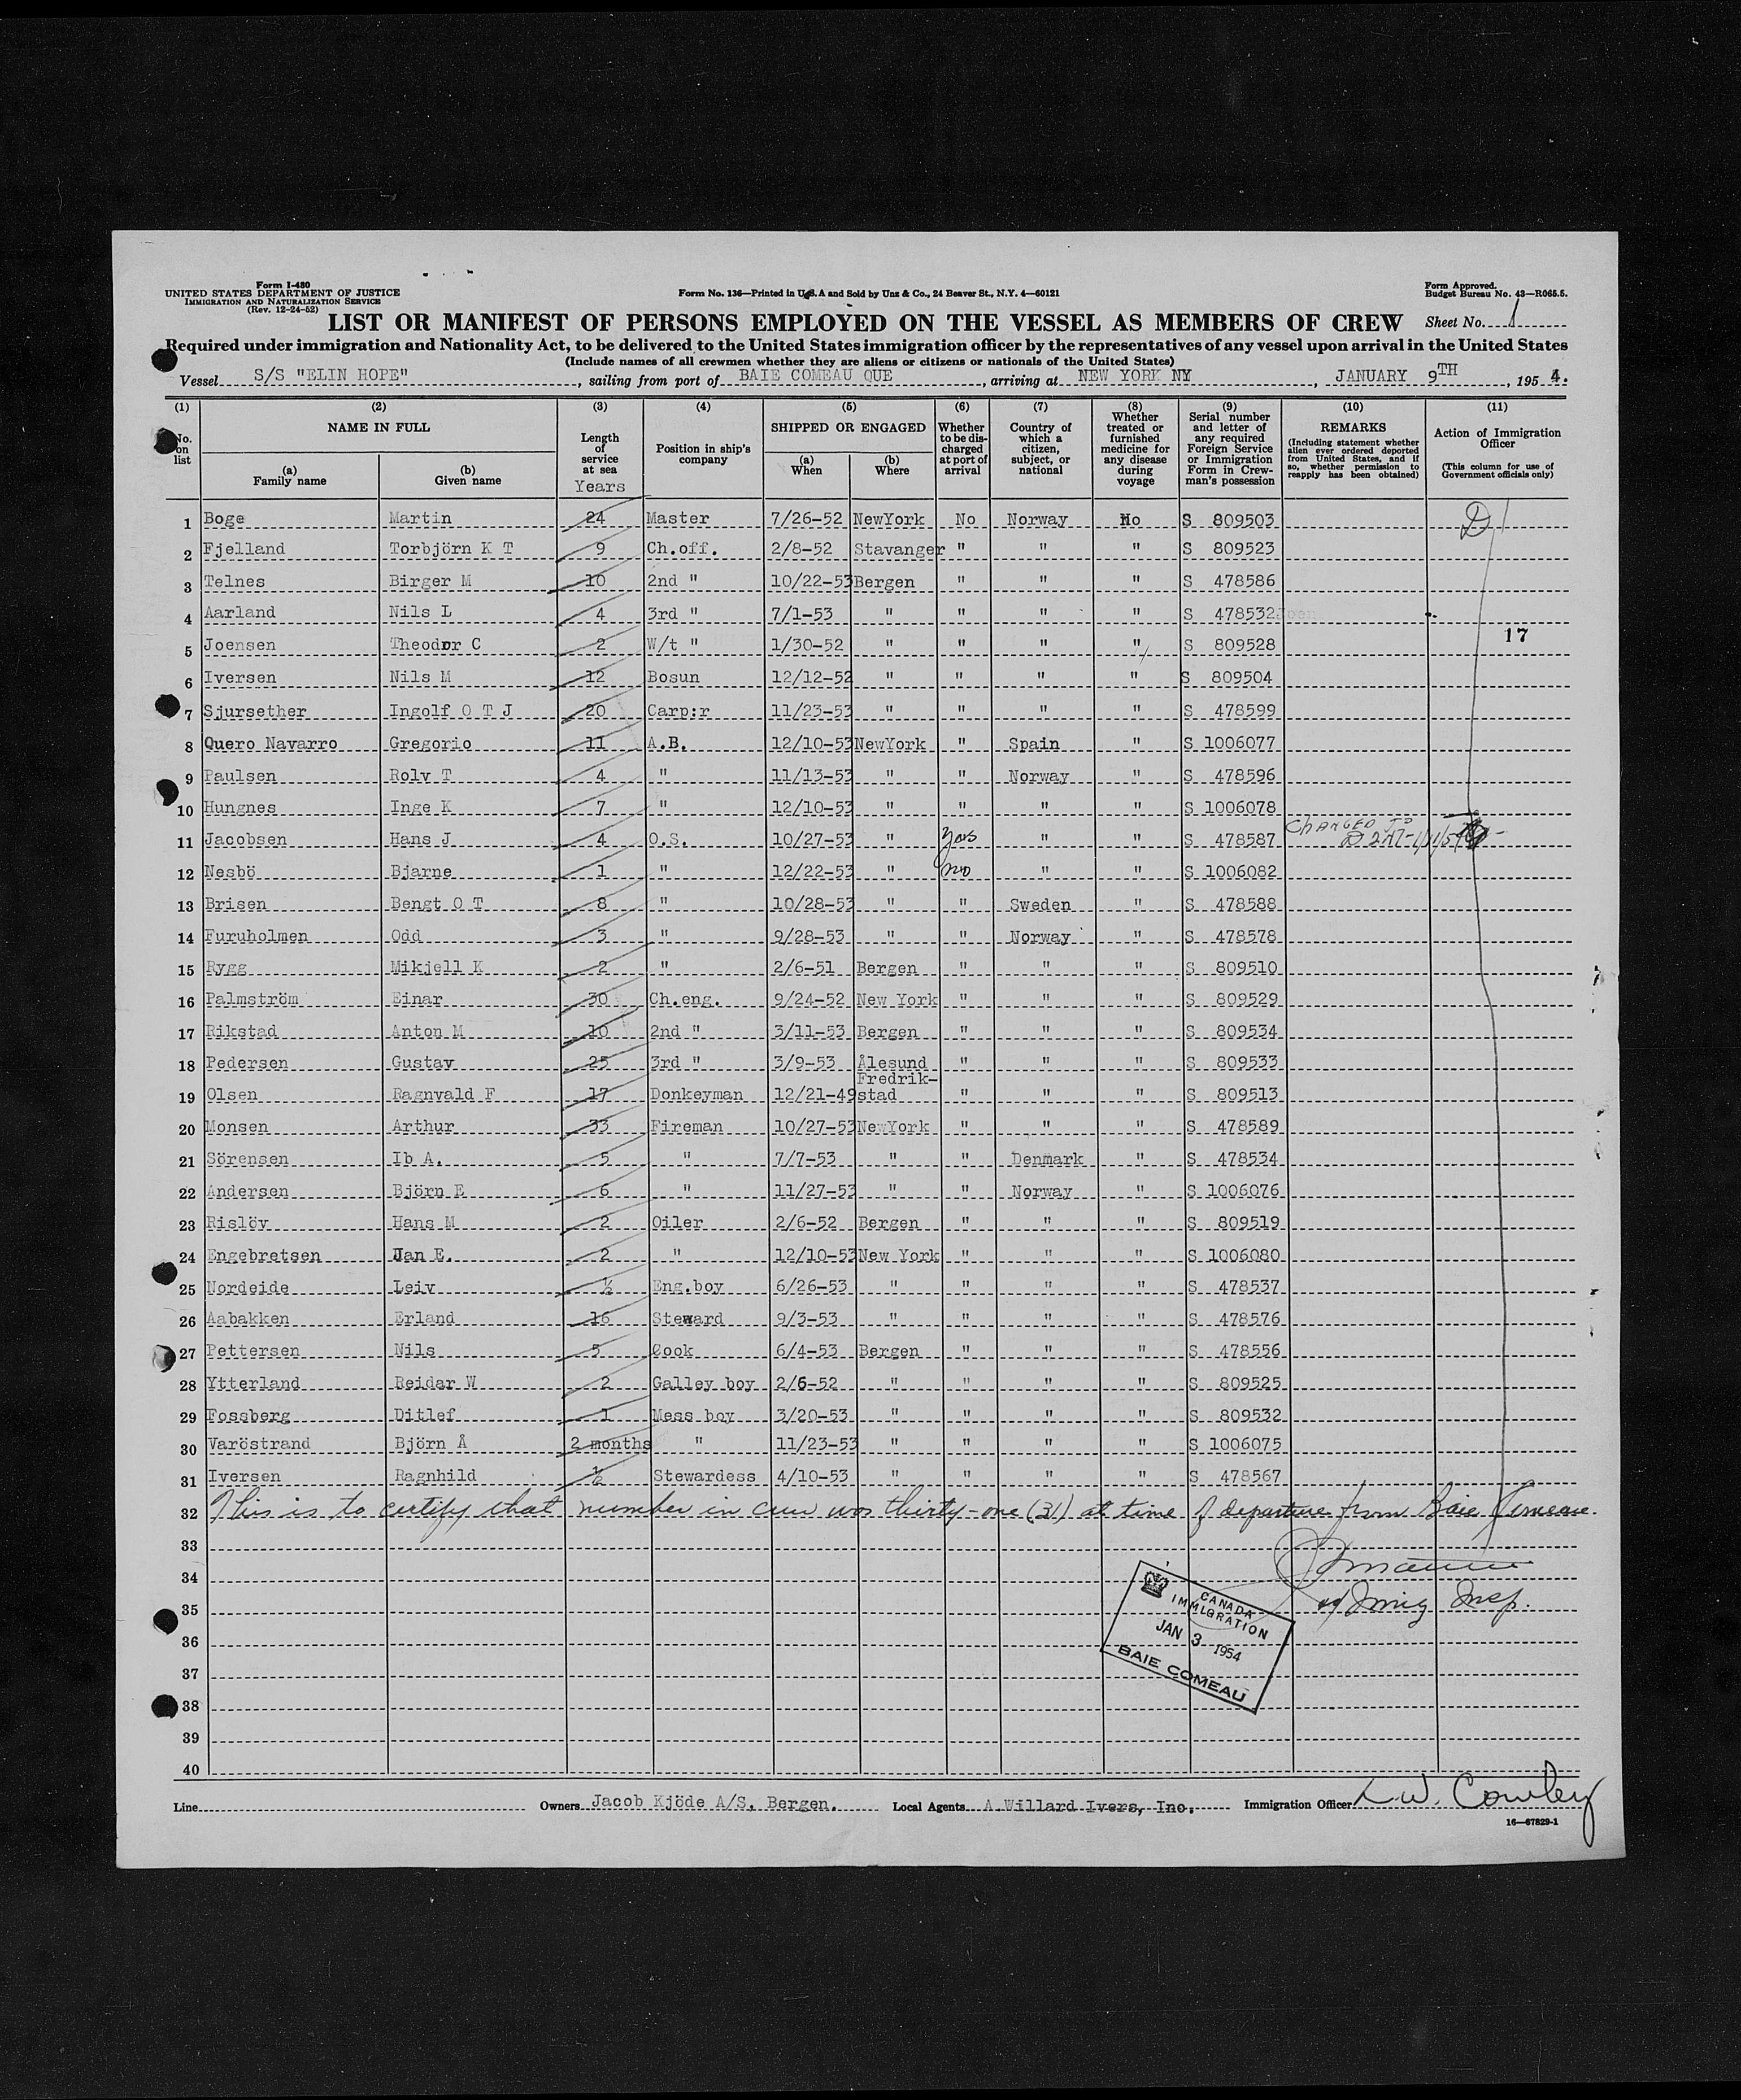 Form I-480
UNITED STATES DEPARTMENT OF JUSTICE
IMMIGRATION AND NATURALIZATION SERVICE
(Rev. 12-24-52)
Form No. 136—Printed in U.S.A and Sold by Unz & Co., 24 Beaver St., N.Y. 4—60121
Form Approved.
Budget Bureau No. 43—R065.5.
LIST OR MANIFEST OF PERSONS EMPLOYED ON THE VESSEL AS MEMBERS OF CREW Sheet No. 1
Required under immigration and Nationality Act, to be delivered to the United States immigration officer by the representatives of any vessel upon arrival in the United States
(Include names of all crewmen whether they are aliens or citizens or nationals of the United States)
Vessel S/S "ELIN HOPE", sailing from port of BAIE COMEAU QUE, arriving at NEW YORK NY, JANUARY 9TH, 1954.
(1) No. on list
(2) NAME IN FULL (a) Family name (b) Given name
(3) Length of service at sea Years
(4) Position in ship's company
(5) SHIPPED OR ENGAGED (a) When (b) Where
(6) Whether to be discharged at port of arrival
(7) Country of which a citizen, subject, or national
(8) Whether treated or furnished medicine for any disease during voyage
(9) Serial number and letter of any required Foreign Service or Immigration Form in Crewman's possession
(10) REMARKS (Including statement whether alien ever ordered deported from United States, and if so, whether permission to reapply has been obtained)
(11) Action of Immigration Officer (This column for use of Government officials only)
1 Boge Martin 24 Master 7/26-52 NewYork No Norway No S 809503 D
2 Fjelland Torbjörn K T 9 Ch.off. 2/8-52 Stavanger " " " S 809523
3 Telnes Birger M 10 2nd " 10/22-53 Bergen " " " S 478586
4 Aarland Nils L 4 3rd " 7/1-53 " " " " S 478532
5 Joensen Theodor C 2 W/t " 1/30-52 " " " " S 809528 17
6 Iversen Nils M 12 Bosun 12/12-52 " " " " S 809504
7 Sjursether Ingolf O T J 20 Carp:r 11/23-53 " " " " S 478599
8 Quero Navarro Gregorio 11 A.B. 12/10-53 NewYork " Spain " S 1006077
9 Paulsen Rolv T 4 " 11/13-53 " " Norway " S 478596
10 Hungnes Inge K 7 " 12/10-53 " " " " S 1006078
11 Jacobsen Hans J 4 O.S. 10/27-53 " yes " " S 478587 CHANGED TO
12 Nesbö Bjarne 1 " 12/22-53 " no " " S 1006082
13 Brisen Bengt O T 8 " 10/28-53 " " Sweden " S 478588
14 Furuholmen Odd 3 " 9/28-53 " " Norway " S 478578
15 Rygg Mikjell K 2 " 2/6-51 Bergen " " " S 809510
16 Palmström Einar 30 Ch.eng. 9/24-52 New York " " " S 809529
17 Rikstad Anton M 10 2nd " 3/11-53 Bergen " " " S 809534
18 Pedersen Gustav 25 3rd " 3/9-53 Ålesund " " " S 809533
19 Olsen Ragnvald F 17 Donkeyman 12/21-49 Fredrik-stad " " " S 809513
20 Monsen Arthur 33 Fireman 10/27-53 NewYork " " " S 478589
21 Sörensen Ib A. 5 " 7/7-53 " " Denmark " S 478534
22 Andersen Björn E 6 " 11/27-53 " " Norway " S 1006076
23 Rislöv Hans M 2 Oiler 2/6-52 Bergen " " " S 809519
24 Engebretsen Jan E. 2 " 12/10-53 New York " " " S 1006080
25 Nordeide Leiv ½ Eng.boy 6/26-53 " " " " S 478537
26 Aabakken Erland 16 Steward 9/3-53 " " " " S 478576
27 Pettersen Nils 5 Cook 6/4-53 Bergen " " " S 478556
28 Ytterland Reidar W 2 Galley boy 2/6-52 " " " " S 809525
29 Fossberg Ditlef 1 Mess boy 3/20-53 " " " " S 809532
30 Varöstrand Björn Å 2 months " 11/23-53 " " " " S 1006075
31 Iversen Ragnhild ½ Stewardess 4/10-53 " " " " S 478567
32 This is to certify that number in crew was thirty-one (31) at time of departure from Baie Comeau.
33
34
35 Immig Insp.
CANADA
IMMIGRATION
JAN 3 1954
BAIE COMEAU
36
37
38
39
40
Line Owners Jacob Kjöde A/S, Bergen. Local Agents A.Willard Ivers, Inc. Immigration Officer L.W. Cowley
16—67829-1